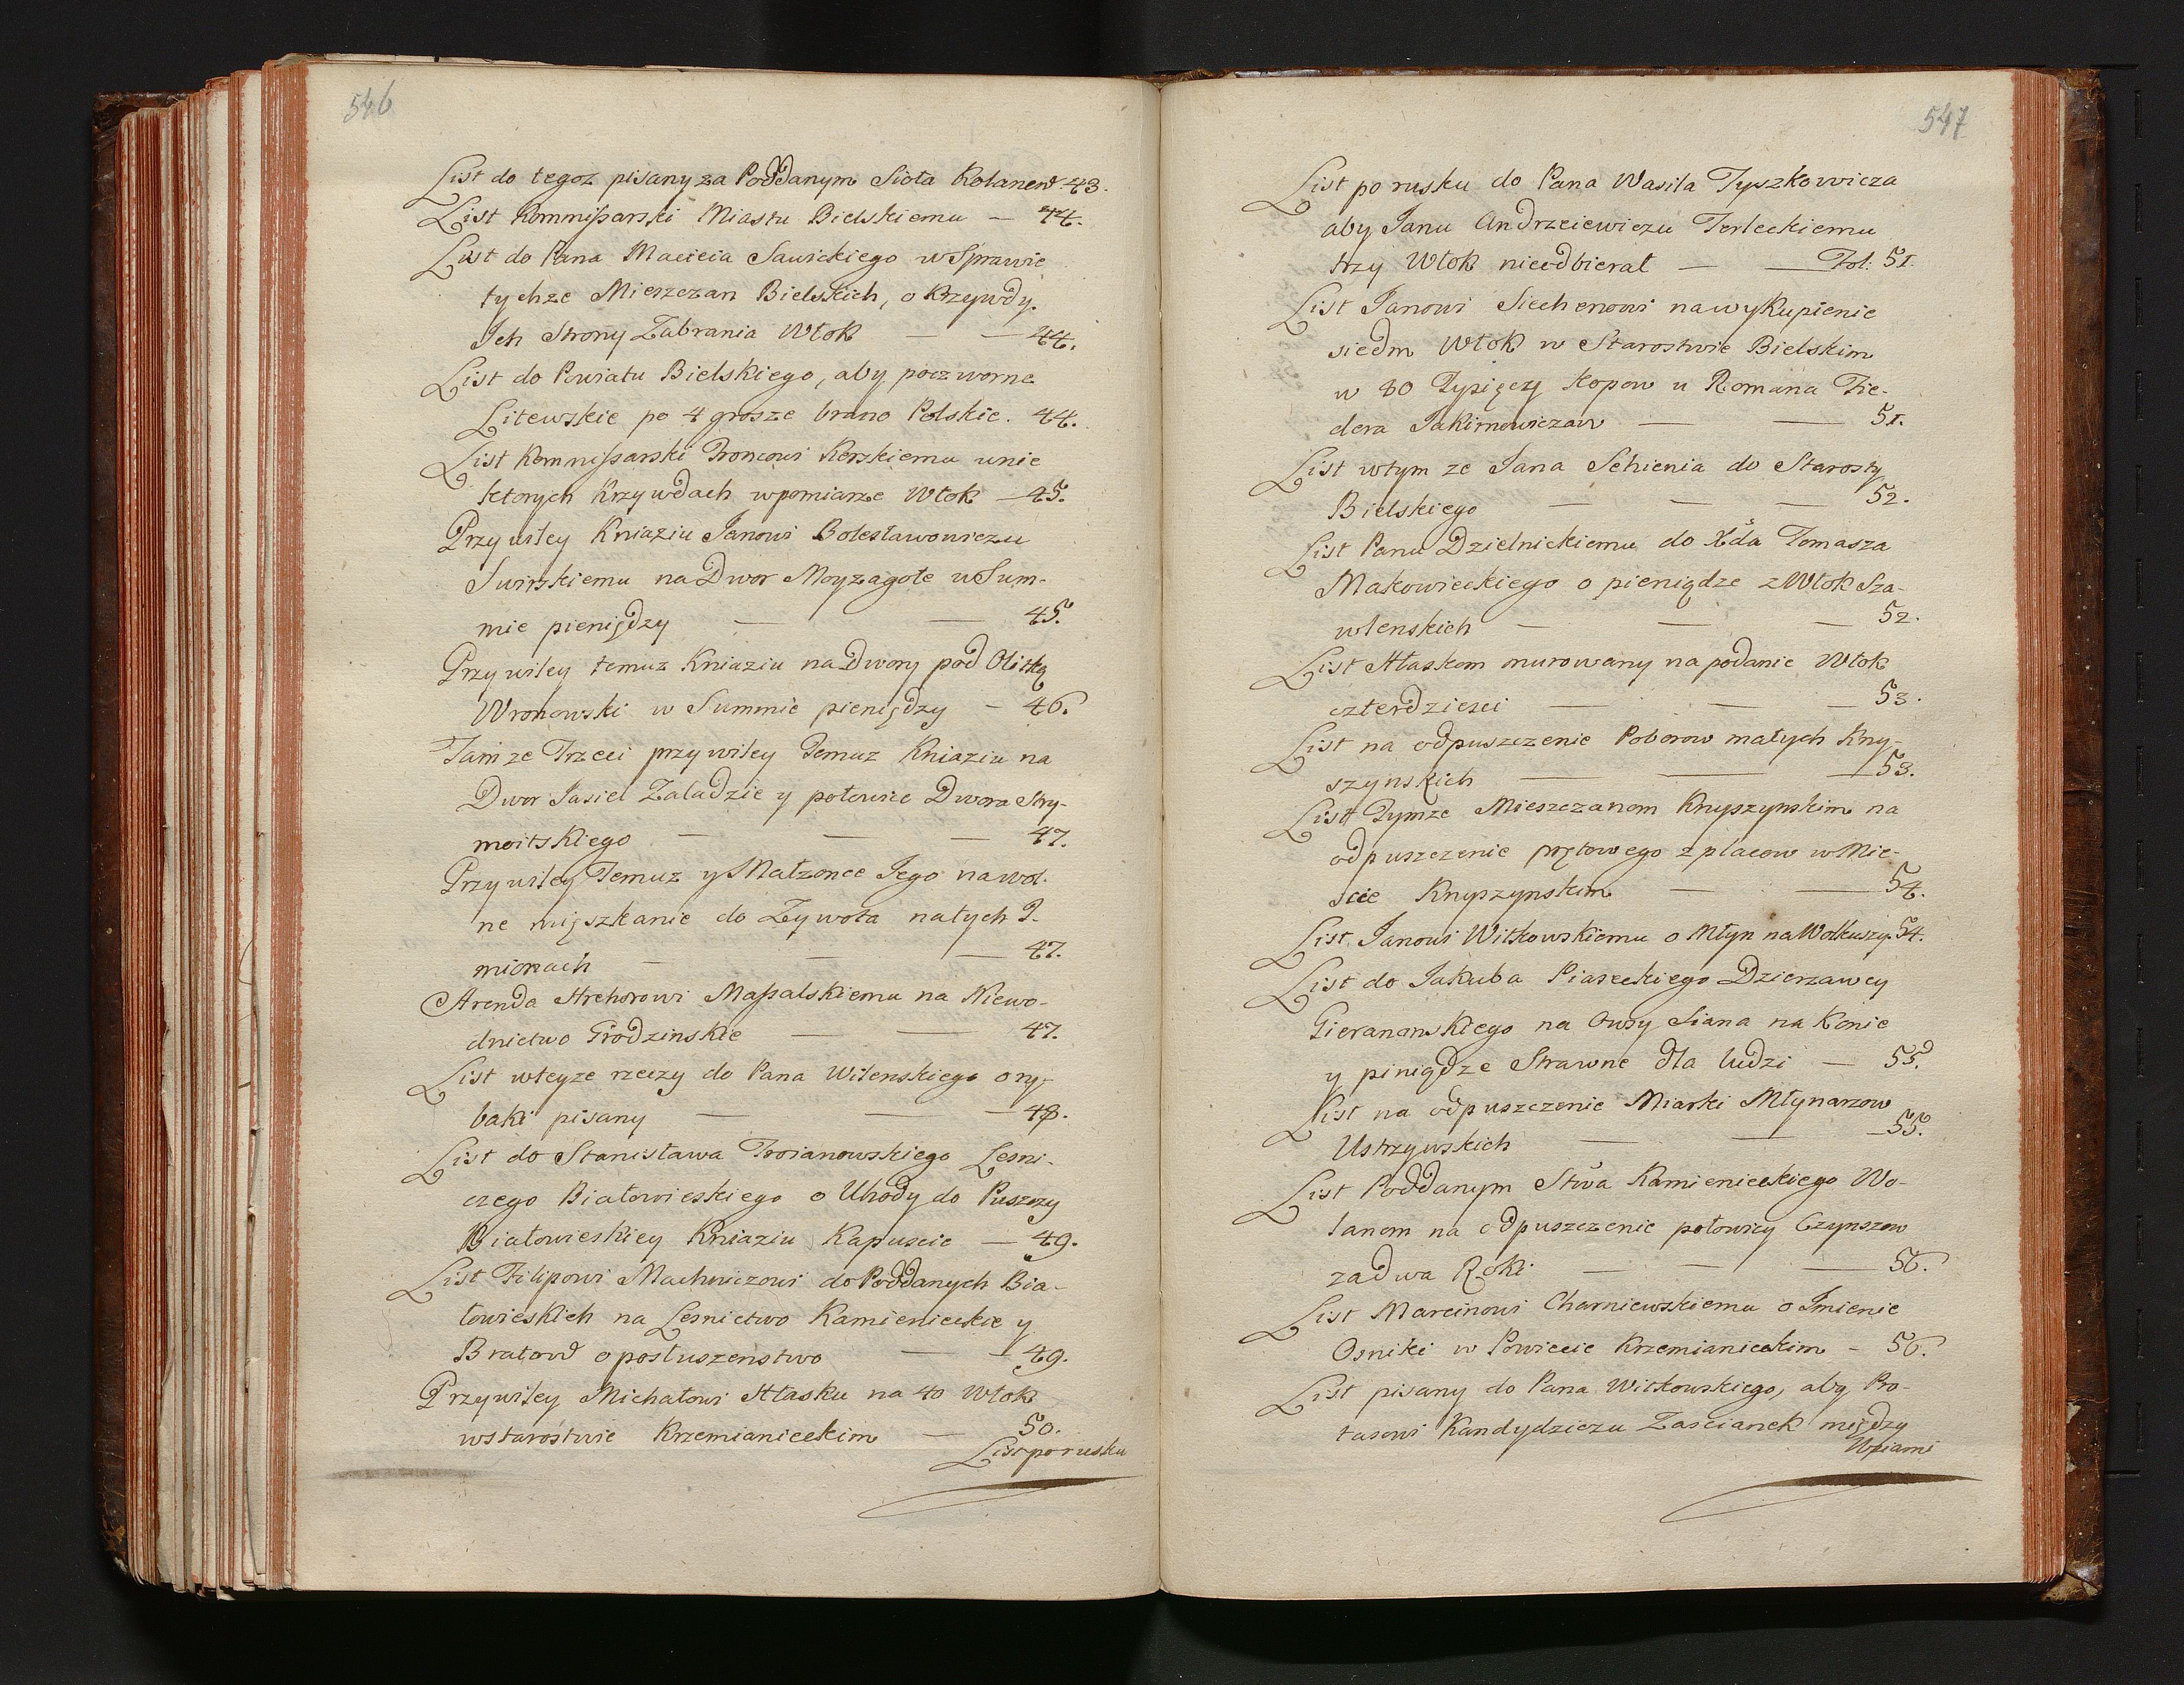 546
List do tegoz pisany za Poddanym Sioła Kolanew. 43.
List Kommissarski Miastu Bielskiemu — 44.
List do Pana Macieia Sawickiego w Sprawie
tychze Mieszczan Bielskich, o Krzywdy.
Ich Strony Zabrania Włok — — 44.
List do Powiatu Bielskiego, aby poczworne
Litewskie po 4 grosze brano Polskie. 44.
List Kommissarski Proncowi Kerskiemu unie
ktorych Krzywdach wpomiarze Włok — 45.
Przywiley Kniaziu Janowi Bolesławowiczu
Swirskiemu na Dwor Moyzagołe w Sum-
mie pieniędzy — — 45.
Przywiley temuz Kniaziu na Dwory pod Olitką
Wronowski w Summie pieniędzy — 46.
Tamze Trzeci przywiley Temuz Kniaziu na
Dwor Jasiel Zaladzie y połowice Dwora Stry-
moitskiego — — — 47.
Przywiley Temuz y Małzonce Jego na wol-
ne mięszkanie do Zywota natych I-
mionach — — — 47.
Arenda Hrehorowi Massalskiemu na Niewo-
dnictwo Grodzinskie — — 47.
List wteyze rzeczy do Pana Wilenskiego o ry-
baki pisany — — — 48.
List do Stanisława Troianowskiego Lesni-
czego Białowieskiego o Uhody do Puszczy
Białowieskiey Kniaziu Kapuscie — 49.
List Filipowi Machwiczowi do Poddanych Bia-
łowieskich na Lesnictwo Kamienieckie y
Bratow o posłuszenstwo — — 49.
Przywiley Michałowi Hłasku na 40 Włok
wstarostwie Krzemianieckim — 50.
List po rusku
547
List po rusku do Pana Wasila Tyszkowicza
aby Janu Andrzeiewiczu Terleckiemu
trzy Włok nieodbierał — — Fol: 51.
List Janowi Siechenowi na wykupienie
siedm Włok w Starostwie Bielskim
w 80 Tysięcy Kopow u Romana Fie-
dora Jakimowiczow — — 51.
List wtym ze Jana Sehienia do Starosty
Bielskiego — — — 52.
List Panu Dzielnickiemu do Xďa Tomasza
Makowieckiego o pieniądze z Włok Sza-
wlenskich — — — 52.
List Hłaskom murowany na podanie Włok
czterdziesci — — — 53.
List na odpuszczenie Poborow małych Kny-
szynskich — — — 53.
List Tymze Mieszczanom Knyszynskim na
odpuszczenie prętowego z placow w Mie-
scie Knyszynskim — — 54.
List Janowi Witkowskiemu o Młyn na Wołkuszy. 54.
List do Jakuba Piaseckiego Dzierzawcy
Gieranonskiego na Owsy Siana na Konie
y piniądze Strawne dla ludzi — 55.
List na odpuszczenie Miarki Młynarzow
Ustrzywskich — — — 55.
List Poddanym Stwa Kamienieckiego Wo-
lanom na odpuszczenie połowicy Czynszow
za dwa Roki — — — 56.
List Marcinowi Charniewskiemu o Jmienie
Osniki w Powiecie Krzemianieckim — 56.
List pisany do Pana Witkowskiego, aby Pro-
tasowi Kandydziczu Zascianek między
Wsiami